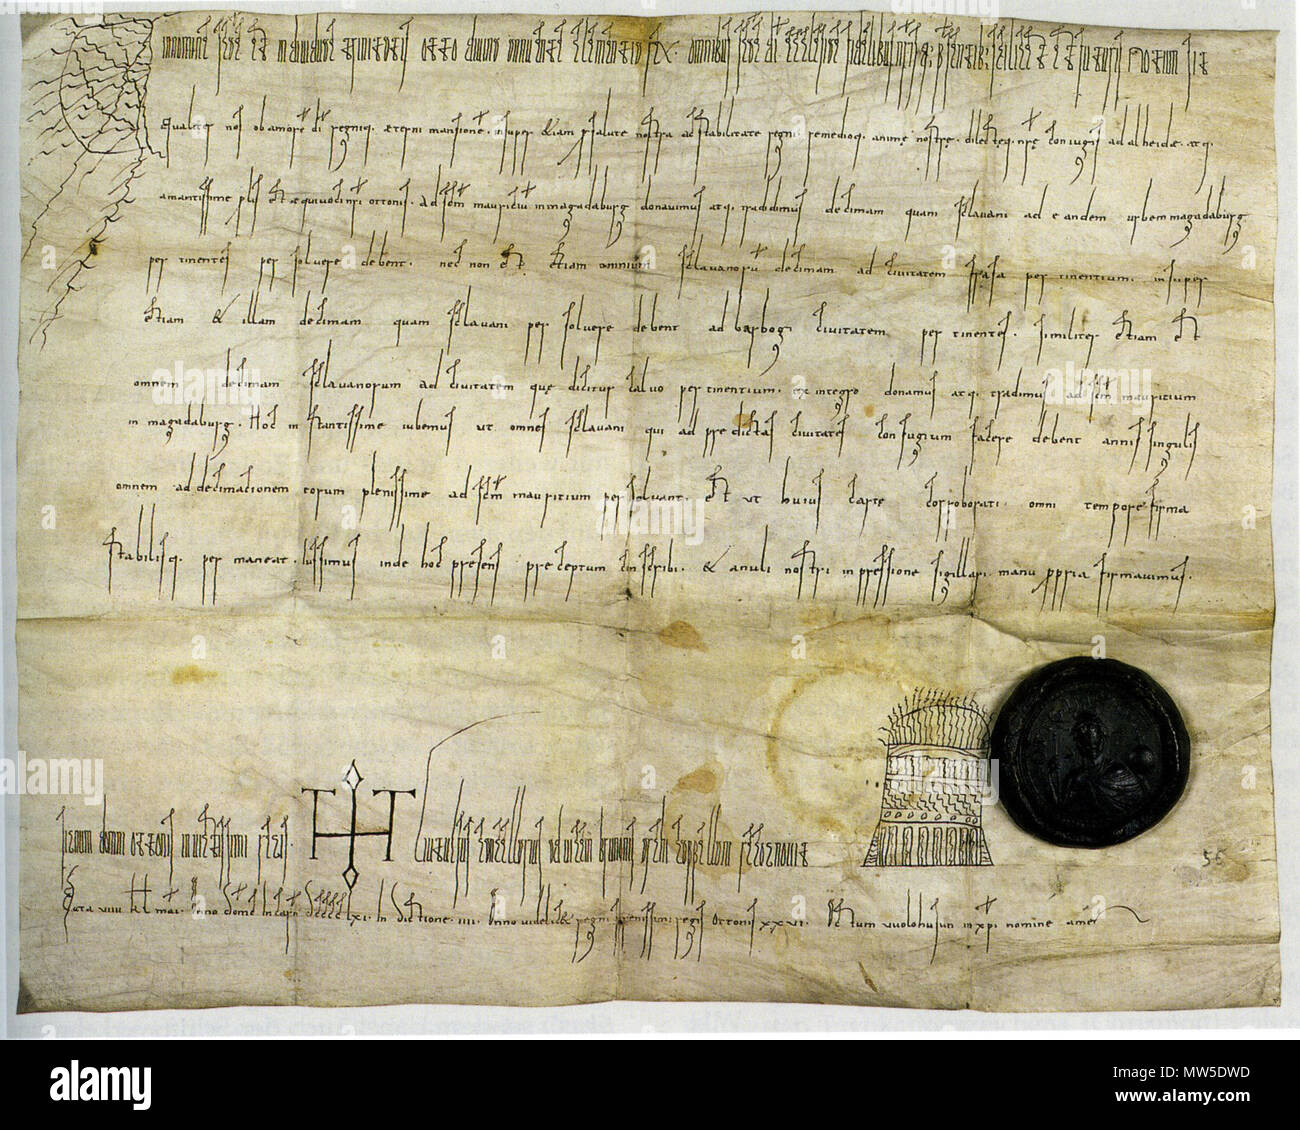 IN NOMINE sce et individue trinitatis otto divina annuente clementia rex. omnibus sce di ecclesie fidelibus nrisq; psentib; scilicet et futuris notum sit
qualiter nos ob amore di regniq. aeterni mansione. insuper etiam p salute nostra ac stabilitate regni remedioq. anime nostrę. dilectęq. nrę coniugis adalheidę. atq.
amantissime plis et aequivoci nri ottonis. Ad scm mauriciu in magadaburg donavimus atq. tradidimus decimam quam sclavani ad eandem urbem magadaburg
pertinentes persolvere debent. nec non et. etiam omnium sclavanoru decimam ad civitatem frasa pertinentium. insuper
etiam & illam decimam quam sclavani persolvere debent ad barbogi civitatem pertinentes. similiter etiam et
omnem decimam sclavanorum ad civitatem quę dicitur calvo pertinentium. ex integro donamus atq. tradimus ad scm mauritium
in magadaburg. Hoc instantissime iubemus ut omnes sclavani qui ad predictas civitates confugium facere debent annis singulis
omnem addecimacionem eorum plenissime ad scm mauritium persolvant. Et ut huius cartę corroborati omni tempore firma
stabilisq. permaneat. iussimus inde hoc presens preceptum conscribi. & anuli nostri inpressione sigillari. manu ppria firmavimus.
signum domni ottonis invictissimi regis. Liutulfus cancellarius ad vicem brunonis archicappellani recognovi
56
Data viiii kl mai. Anno dominice incarn DCCCCLXI. Indictione. iiii. Anno videlic& regni serenissimi regis Ottonis xxvi. Actum vvolohusun in xpi nomine amen
alamy
Image ID: MW5DWD
www.alamy.com